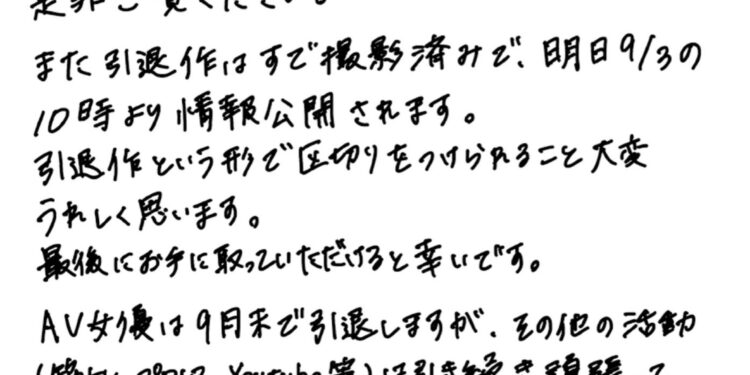 是非ご覧ください。
また引退作はすで撮影済みで、明日9/3の
10時より情報公開されます。
引退作という形で区切りをつけられること大変
うれしく思います。
最後にお手に取っていただけると幸いです。
AV女優は9月末で引退しますが、その他の活動
Youtube等)は引き続き頑張って